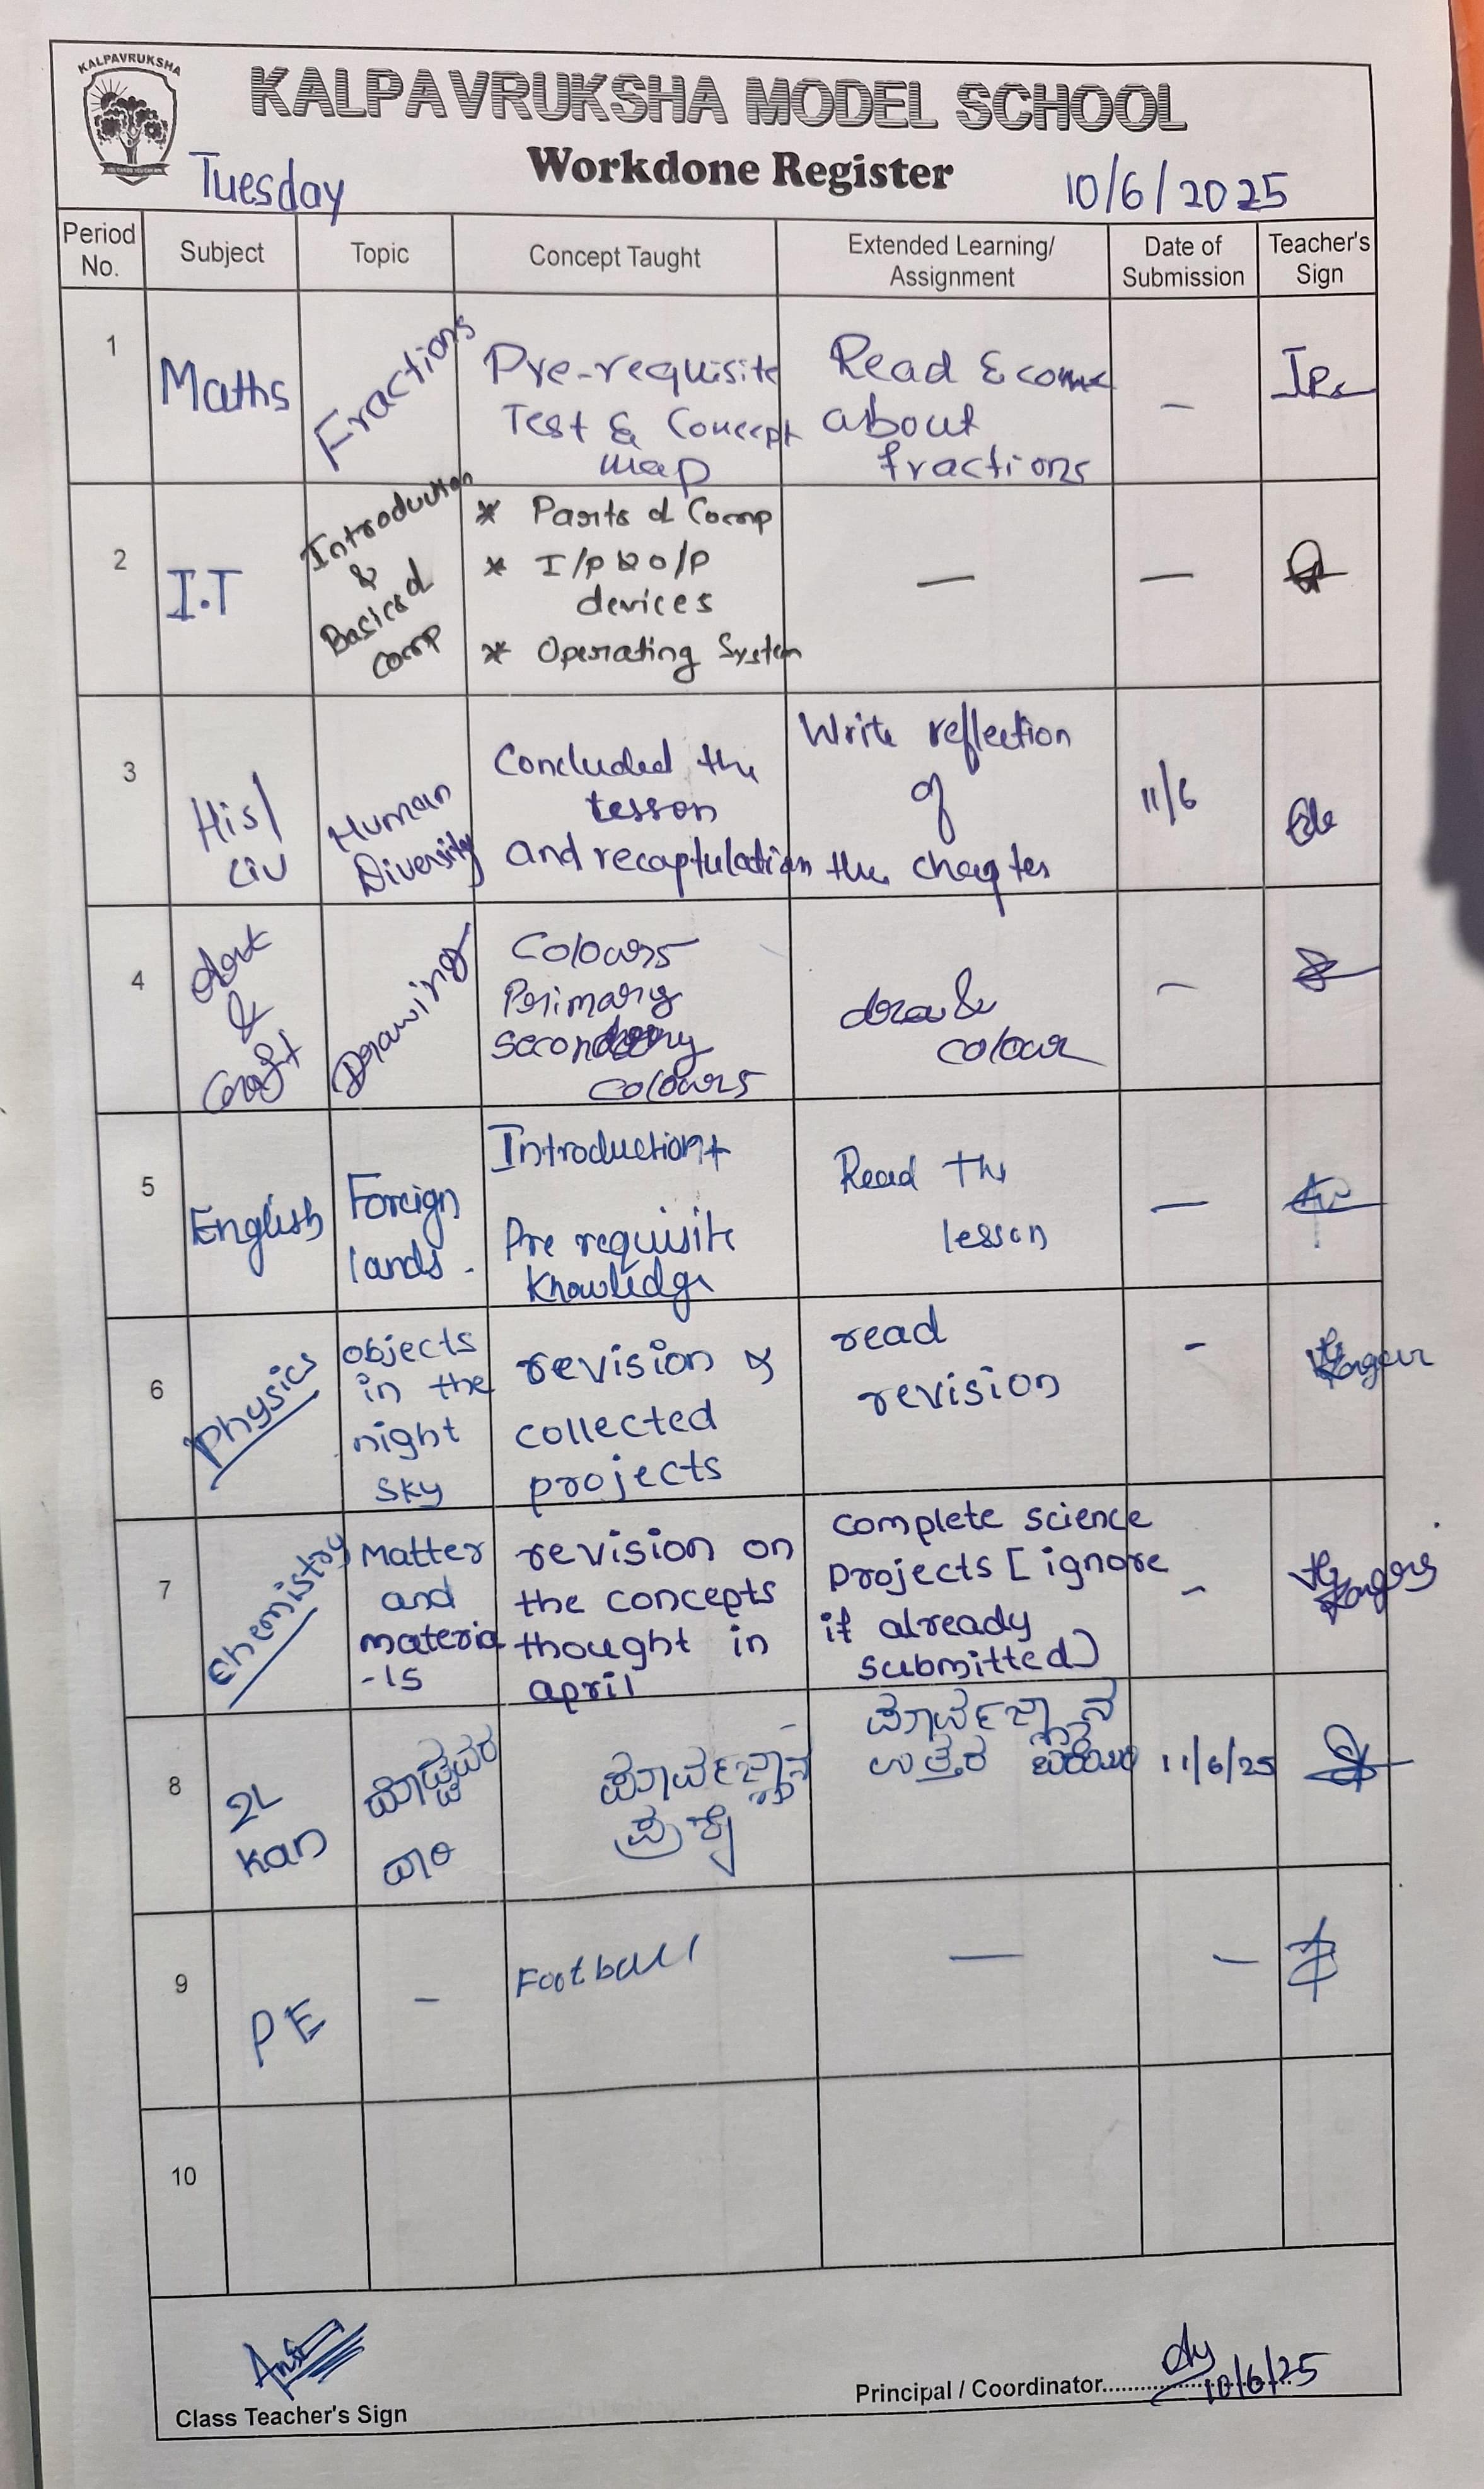 KALPAVRUKSHA
KALPAVRUKSHA MODEL SCHOOL
Workdone Register
Tuesday
10/6/2025
Period No.
Subject
Topic
Concept Taught
Extended Learning/
Assignment
Date of
Submission
Teacher's
Sign
1
Maths
Fractions
Pre-requisite
Test & Concept
map
Read & come
about
fractions
-
2
I.T
Introduction
&
Basics of
comp
* Parts of Comp
* I/p & o/p
devices
* Operating System
—
—
3
His/
civ
Human
Diversity
Concluded the
lesson
and recaptulation
Write reflection
of
the chapter
11/6
4
Art
&
Craft
Drawing
Colours
Primary
secondary
colours
draw &
colour
-
5
English
Foreign
lands.
Introduction +
Pre requisite
knowledge
Read the
lesson
—
6
Physics
objects
in the
night
sky
revision &
collected
projects
read
revision
-
7
Chemistry
Matter
and
materia
-ls
revision on
the concepts
thought in
april
complete science
projects [ ignore
if already
submitted)
-
8
2L
Kan
ದೊಡ್ಡವರ
ದಾರಿ
ಪೂರ್ವಜ್ಞಾನ
ಪ್ರಶ್ನೆ
ಪೂರ್ವಜ್ಞಾನ
ಉತ್ತರ
11/6/25
9
PE
-
Football
—
-
10
Class Teacher's Sign
Principal / Coordinator
10/6/25